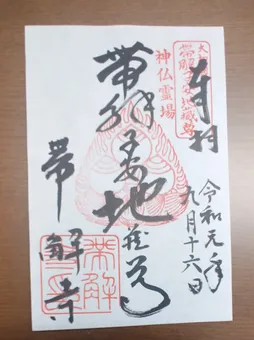 奉拝
令和元年
九月十六日
神仏霊場
帯解子安地蔵尊
帯解寺
帯解